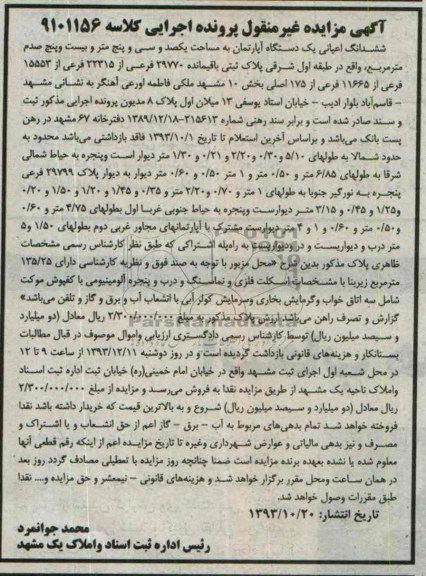 آگهی مزایده غیر منقول پرونده اجرایی کلاسه ۹۱۰۱۱۵۶
ششدانگ اعیانی یک دستگاه آپارتمان به مساحت یکصد و سی و پنج متر و بیست وپنج صدم
مترمربع، واقع در طبقه اول شرقی پلاک ثبتی باقیمانده ۲۹۷۷۰ فرعی از ۲۲۳۱۵ فرعی از ۱۵۵۵۳
فرعی از ۱۱۶۶۵ فرعی از ۱۷۵ اصلی بخش ۱۰ مشهد ملکی فاطمه اورعی آهنگر به نشانی مشهد
- قاسم‌آباد بلوار ادیب - خیابان استاد یوسفی ۱۳ میلان اول پلاک ۸ مدیون پرونده اجرایی مذکور ثبت
و سند صادر شده است و برابر سند رهنی شماره ۲۱۵۶۱۳-۱۳۸۹/۱۲/۱۸ دفترخانه ۶۷ مشهد در رهن
پست بانک می‌باشد و براساس آخرین استعلام تا تاریخ ۱۳۹۳/۱۰/۱ فاقد بازداشتی می‌باشد محدود به
حدود شمالا به طولهای ۵/۱۰ و۰/۳۰ و۲/۲۰ و ۰/۲۱ و ۱/۳۰ متر دیوار است وپنجره به حیاط شمالی
شرقا به طولهای ۶/۸۵ متر و ۰/۵۰ متر و ۱ متر و ۰/۵۰ و ۰/۶۰ متر دیوار به دیوار پلاک ۲۹۷۹۹ فرعی
پنجره به نورگیر جنوبا به طولهای ۱ متر و ۰/۷۰ و۲/۲۰ متر و ۰/۳۵ و ۱/۴۵ و ۱/۲۰ و ۱/۵۰ و ۰/۲۰
و۱/۲۵ و ۰/۴۵ و ۳/۱۵ متر دیواریست وپنجره به حیاط جنوبی غربا اول بطولهای ۴/۷۵ متر و ۰/۶۰
و۰/۵۰ متر و ۰/۶۰ و ۱ و ۴ متر دیواریست مشترک با آپارتمانهای مجاور غربی دوم بطولهای ۱/۵۰ و۵
متر درب و دیواریست و در ودیواریست به راه‌پله اشتراکی که طبق نظر کارشناس رسمی مشخصات
ظاهری پلاک مذکور بدین شرح «محل مزبور با توجه به صند فوق و نظریه کارشناسی دارای ۱۳۵/۲۵
مترمربع زیربنا با مشخصات اسکلت فلزی و نماسنگ و درب و پنجره آلومینیومی با کفپوش موکت
شامل سه اتاق خواب وگرمایش بخاری وسرمایش کولر آبی با انشعاب آب و برق و گاز و تلفن می‌باشد»
گزارش و تصرف راهن می‌باشد ارزش پلاک مذکور به مبلغ ۲/۳۰۰/۰۰۰/۰۰۰ ریال معادل (دو میلیارد
و سیصد میلیون ریال) توسط کارشناس رسمی دادگستری ارزیابی واموال موصوف در قبال مطالبات
بستانکار و هزینه‌های قانونی بازداشت گردیده است و در روز دوشنبه ۱۳۹۳/۱۲/۱۱ از ساعت ۹ تا ۱۲
در محل شعبه اول اجرای ثبت مشهد واقع در خیابان امام خمینی(ره) خیابان ثبت اداره ثبت اسناد
واملاک ناحیه یک مشهد از طریق مزایده نقدا به فروش می‌رسد و مزایده از مبلغ ۲/۳۰۰/۰۰۰/۰۰۰
ریال معادل (دو میلیارد و سیصد میلیون ریال) شروع و به بالاترین قیمت که خریدار داشته باشد نقدا
فروخته خواهد شد تمام بدهی‌های مربوط به آب - برق - گاز اعم از حق انشعاب و یا اشتراک و
مصرف و نیز بدهی مالیاتی و عوارض شهرداری وغیره تا تاریخ مزایده اعم از اینکه رقم قطعی آنها
معلوم شده یا نشده بعهده برنده مزایده است ضمنا چنانچه روز مزایده با تعطیلی مصادف گردد روز بعد
در همان ساعت ومحل مقرر برگزار خواهد شد و هزینه‌های قانونی - نیمعشر و حق مزایده و.... نقدا
طبق مقررات وصول خواهد شد.
تاریخ انتشار: ۱۳۹۳/۱۰/۲۰
محمد جوانمرد
رئیس اداره ثبت اسناد واملاک یک مشهد